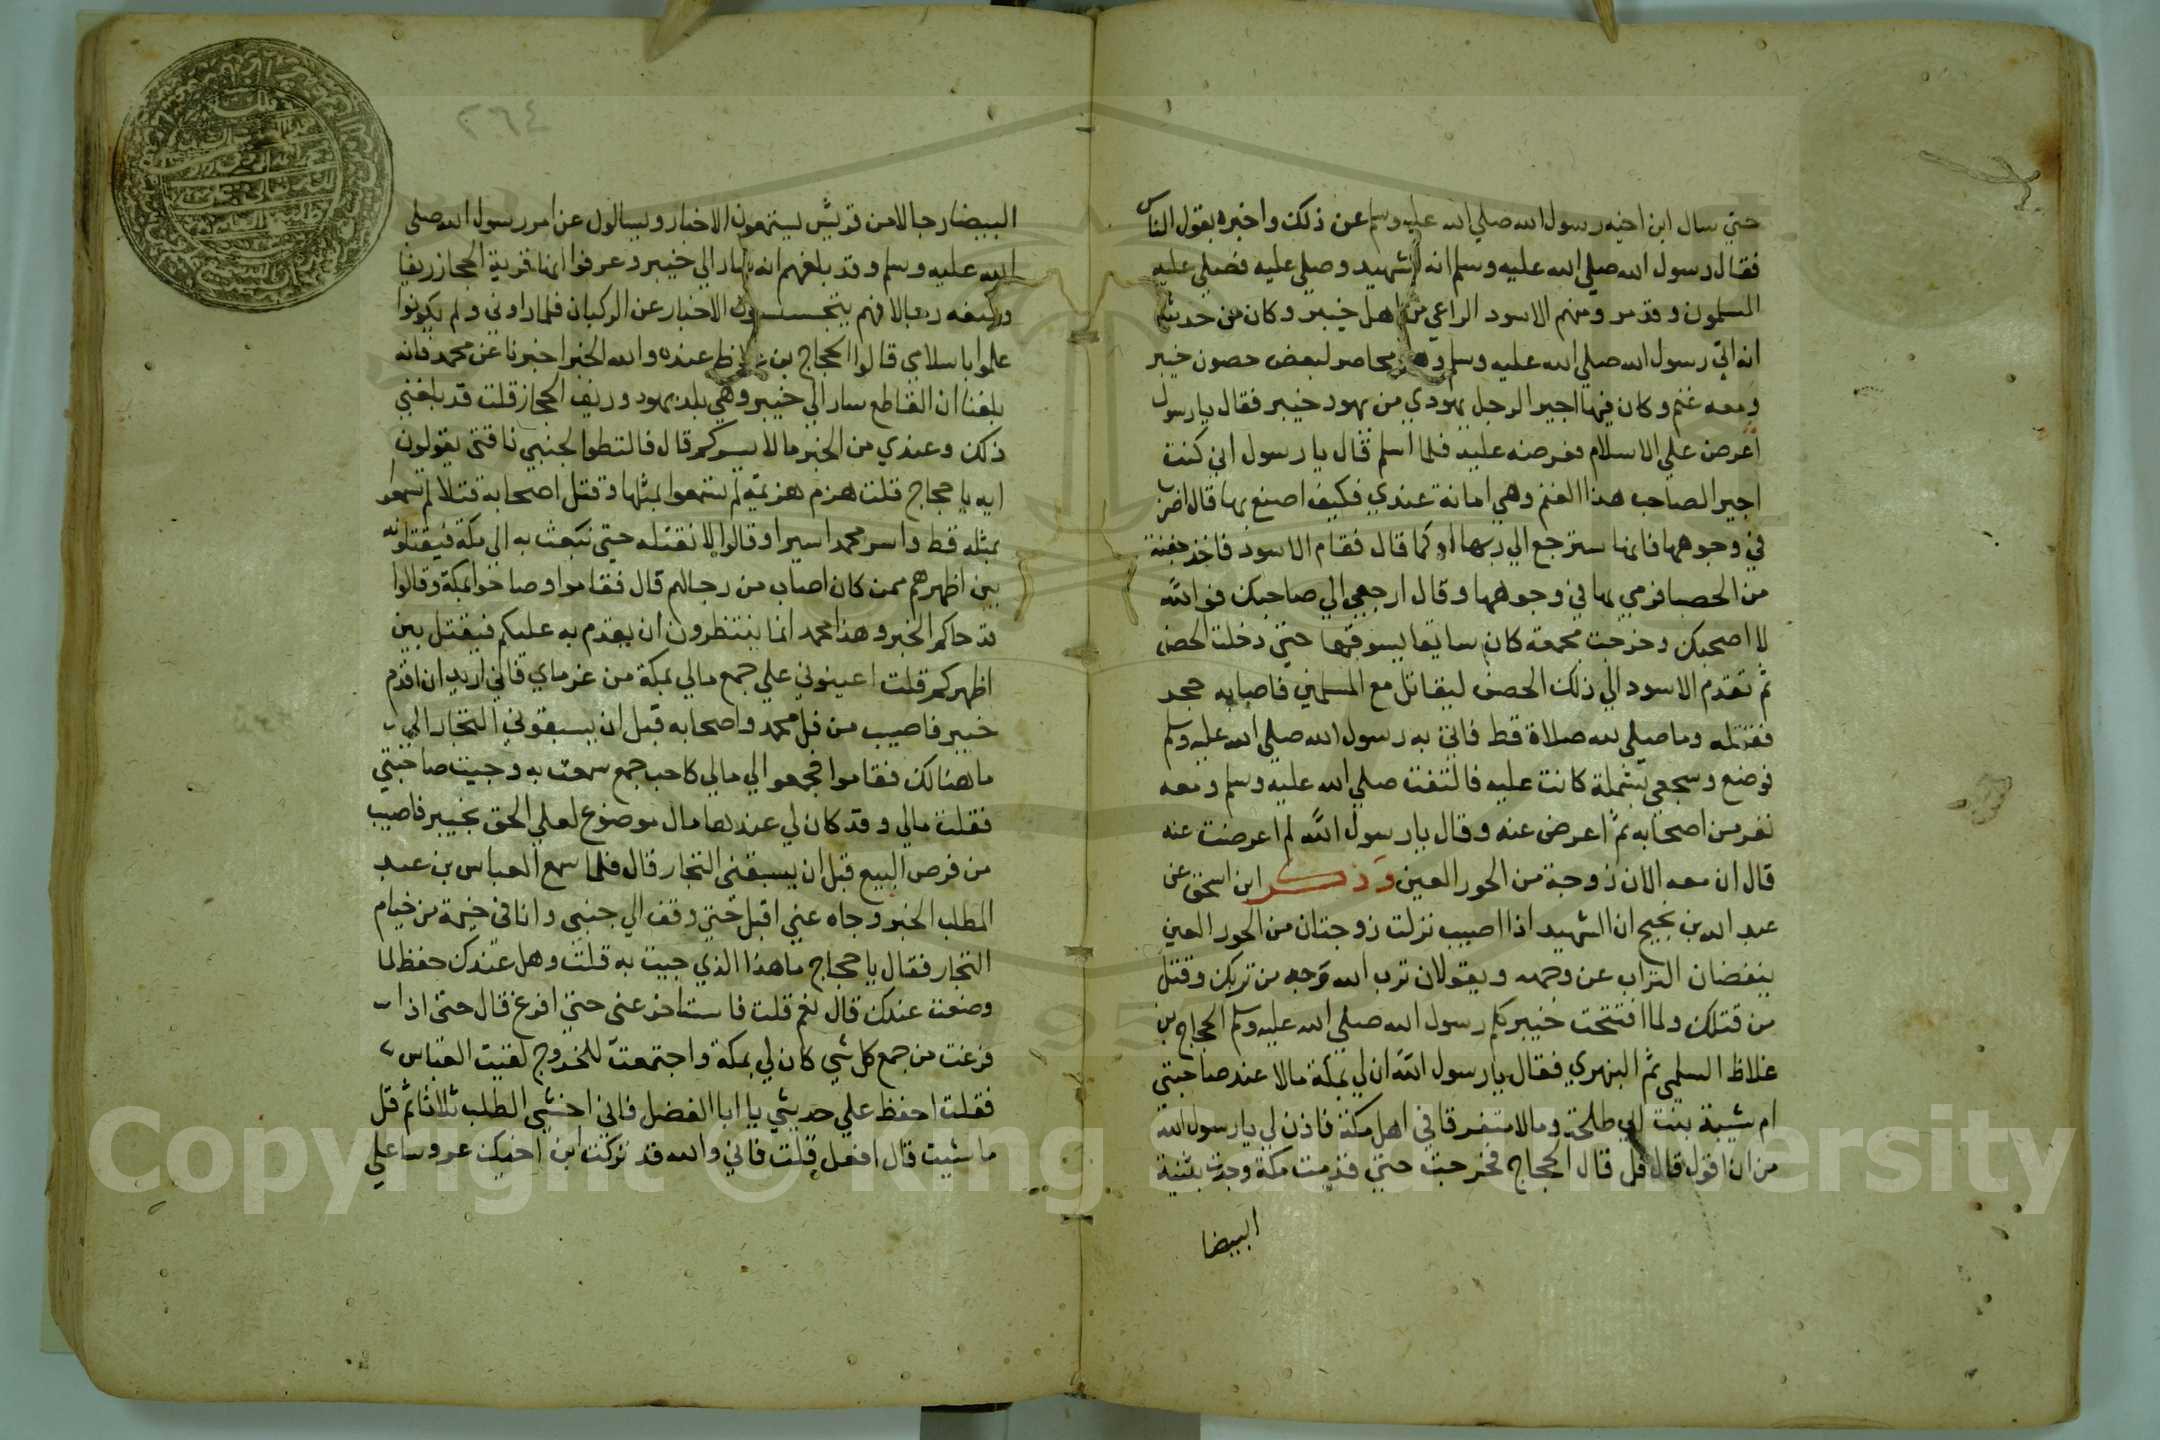 حتي سال ابن اخيه رسول الله صلي الله عليه وسلم عن ذلك واخبره بقول الناس
فقال رسول الله صلي الله عليه وسلم انه لشهيد وصلي عليه فصلي عليه
المسلمون وقد مر ومنهم الاسود الراعي من اهل خيبر وكان من حديثه
انه اتي رسول الله صلي الله عليه وسلم وهو محاصر لبعض حصون خيبر
ومعه غنم وكان فيها اجير الرجل يهودي من يهود خيبر فقال يا رسول
اعرض علي الاسلام فعرضه عليه فلما اسلم قال يا رسول اني كنت
اجير الصاحب هذا الغنم وهي امانة عندي فكيف اصنع بها قال اضرب
في وجوهها فانها سترجع الي ربها او كما قال فقام الاسود فاخذ حفنة
من الحصبا فرمي بها في وجوهها وقال ارجعي الي صاحبك فوالله
لا اصحبك وخرجت مجمعة كان سايقا يسوقها حتي دخلت الحصن
ثم تقدم الاسود الي ذلك الحصن ليقاتل مع المسلمين فاصابه حجر
فقتله وما صلي لله صلاة قط فاتي به رسول الله صلي الله عليه وسلم
فوضع وسجعي بشملة كانت عليه فالتفت صلي الله عليه وسلم ومعه
نفر من اصحابه ثم اعرض عنه وقال يا رسول الله لم اعرضت عنه
قال ان معه الان زوجة من الحور العين وذكر ابن اسحق عن
عبد الله بن نجيح ان الشهيد اذا اصيب نزلت زوجتان من الحور العين
ينفضان التراب عن وجهه ويقولان ترب الله وجه من تربك وقتل
من قتلك ولما افتتحت خيبر كلم رسول الله صلي الله عليه وسلم الحجاج بن
غلاظ السلمي ثم البهري فقال يا رسول الله ان لي بمكة مالا عند صاحبتي
ام شيبة بنت ابي طلحة ومالا متفرقا في اهل مكة فاذن لي يا رسول الله
من ان اقول قال قل قال الحجاج فخرجت حتي قدمت مكة وجدت بثنية
البيضا
٢٦٤
البيضا رجالا من قريش يستمعون الاخبار ويسالون عن امر رسول الله صلي
الله عليه وسلم وقد بلغهم انه سار الي خيبر وعرفوا انها قرية الحجاز ريفا
ومنعه ورجالا فهم يتجسسون الاخبار عن الركبان فلما راوني ولم يكونوا
علموا باسلامي قالوا الحجاج بن غلاظ عنده والله الخبر اخبرنا عن محمد فانه
بلغنا ان القاطع سار الي خيبر وهي بلد يهود وريف الحجاز قلت قد بلغني
ذلك وعندي من الخبر ما لا يسركم قال فالتبطوا لجنبي ناقتي يقولون
ايه يا حجاج قلت هزم هزيمة لم تسمعوا بمثلها وقتل اصحابه قتلا لم تسمعوا
بمثله قط واسر محمد اسيرا وقالوا لا نقتله حتي نبعث به الي مكة فيقتلونه
بين اظهرهم ممن كان اصاب من رجالهم قال فقاموا وصاحوا بمكة وقالوا
قد جاكم الخبر وهذا محمد انما ينتظرون ان يقدم به عليكم فيقتل بين
اظهركم قلت اعينوني علي جمع مالي بمكة من غرماي فاني اريد ان اقدم
خيبر فاصيب من فل محمد واصحابه قبل ان يسبقوني التجار الي
ما هنالك فقاموا فجمعوا لي مالي كاحب جمع سمعت به وجيت صاحبتي
فقلت مالي وقد كان لي عندها مال موضوع لعلي الحق بخيبر فاصيب
من فرص البيع قبل ان يسبقني التجار قال فلما سمع العباس بن عبد
المطلب الخبر وجاه عني اقبل حتي وقف الي جنبي وانا في خيمة من خيام
التجار فقال يا حجاج ما هذا الذي جيت به قلت وهل عندك حفظ لما
وضعت عندك قال نعم قلت فاستاخر عني حتي افرغ قال حتي اذا
فرغت من جمع كل شي كان لي بمكة واجتمعت للخروج لقيت العباس
فقلت احفظ علي حديثي يا ابا الفضل فاني اخشي الطلب ثلاثا ثم قل
ما شيت قال افعل قلت فاني والله قد تركت ابن اخيك عروسا علي
Copyright © King Saud University